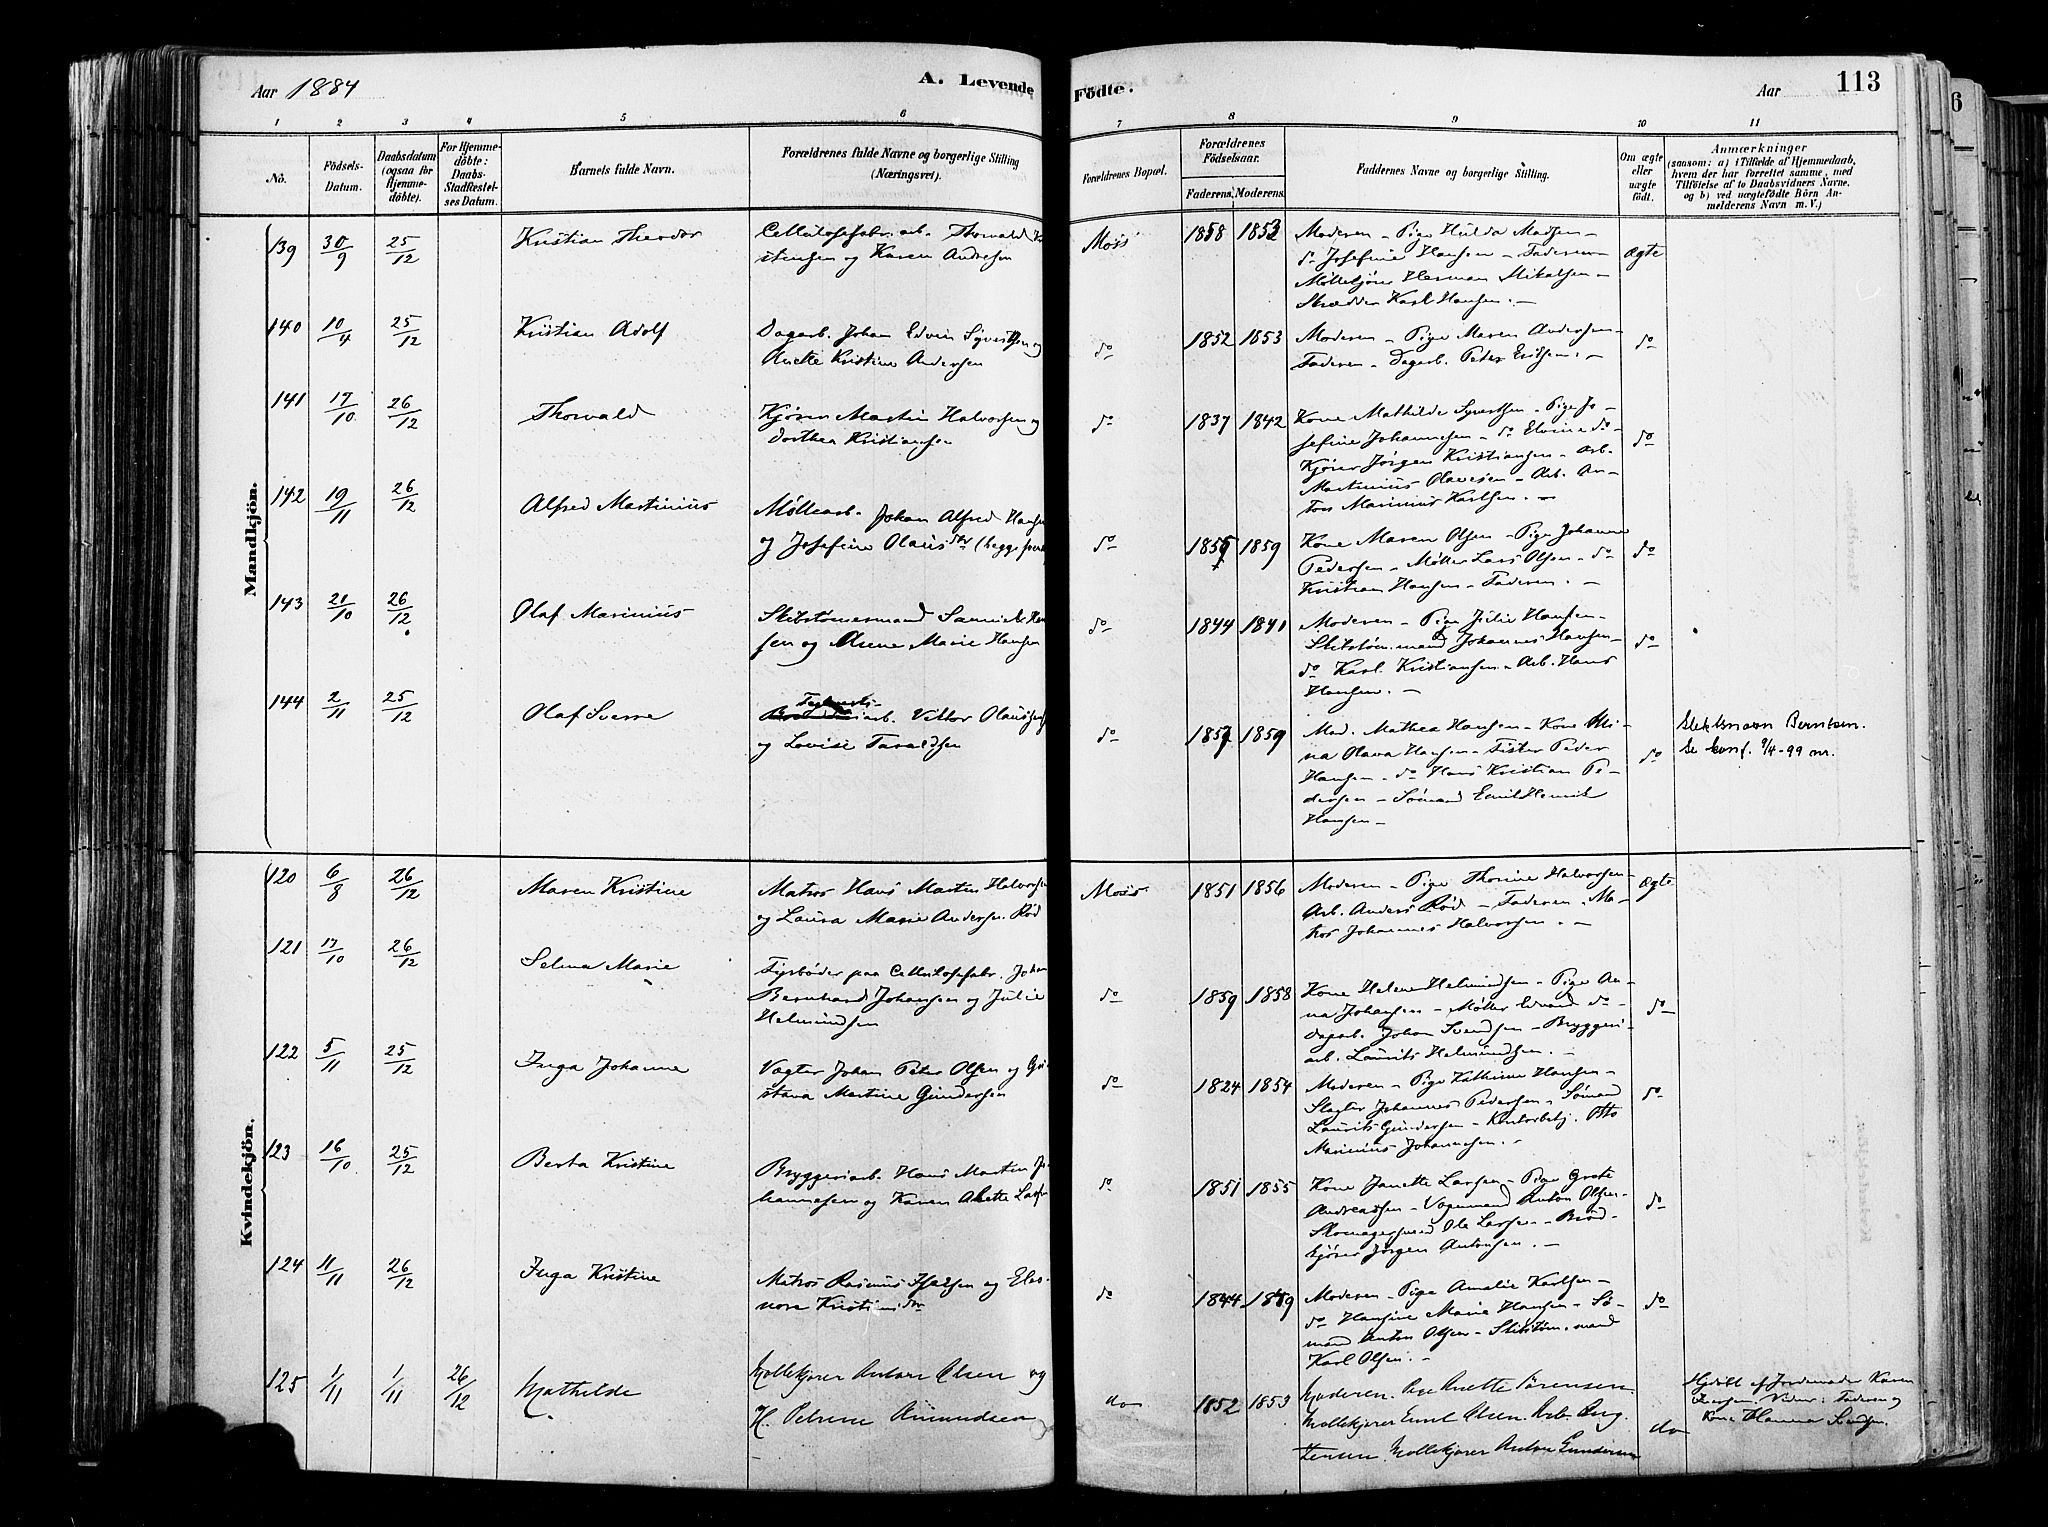 Aar 1884
A. Levende Födte.
Aar
113
1 2 3 4 5 6 7 8 9 10 11
No.
Födsels-Datum.
Daabsdatum (ogsaa for Hjemmedöbte).
For Hjemmedöbte: Daabs-Stadfæstelses Datum.
Barnets fulde Navn.
Forældrenes fulde Navne og borgerlige Stilling (Næringsvei).
Forældrenes Bopæl.
Forældrenes Födselsaar.
Faderens. Moderens.
Faddernes Navne og borgerlige Stilling.
Om ægte eller uægte födt.
Anmærkninger
(saasom: a) i Tilfælde af Hjemmedaab, hvem der har forrettet samme, med Tilföielse af to Daabsvidners Navne, og b) ved uægtefödte Börn Anmelderens Navn m. V.)
Mandkjön.
139 30/9 25/12 Kristian Theodor
Cellulosefabr.arb. Thorvald
stensen og Karen Andresen
Moss 1858 1853
Moderen – Pige Hulda Madsen –
do Josefine Hansen – Faderen –
Møllekjører Herman Mikalsen –
Skrædder Karl Hansen. –
Ægte
140 10/4 25/12 Kristian Adolf
Dagarb. Johan Edvin Syvertsen og
Anette Kristine Andersen
do 1852 1853
Moderen – Pige Maren Andersen –
Faderen – Dagarb. Peder Eriksen. –
do
141 17/10 26/12 Thorvald
Kjører Martin Halvorsen og
Dorthea Kristiansen
do 1837 1842
Kone Mathilde Syvertsen – Pige Jo-
sefine Johannesen – do Elvine do –
Kjører Jørgen Kristiansen – Arb.
Martinius Olavesen – Arb. An-
ton Marinius Karlsen. –
do
142 19/11 26/12 Alfred Martinius
Møllearb. Johan Alfred Hansen
og Josefine Olausdtr (begge
do 1855 1859
Kone Maren Olsen – Pige Johanne
Pedersen – Møller Lars Olsen – do
Kristian Hansen – Faderen. –
do
143 21/10 26/12 Olaf Marinius
Skibstømmermand Samuel Han
sen og Anne Marie Hansen
do 1844 1841
Moderen – Pige Julie Hansen –
Skibstøm.mand Johannes Hansen –
do Karl Kristiansen – Arb. Hans
Hansen. –
do
144 2/11 25/12 Olaf Sverre
arb. Viktor Olaussen
og Lovise Taraldsen
do 1857 1859
Mad. Mathea Hansen – Kone Mi-
na Olava Hansen – Fisker Peder
Hansen – do Hans Kristian Pe-
dersen – Sømand Emil Henrik
Hansen –
do
Slektsnavn Berntsen.
Se konf. 9/4-99 nr.
Kvindekjön.
120 6/8 26/12 Maren Kristine
Matros Hans Martin Halvorsen
og Laura Marie Andersen Rød
Moss 1851 1856
Moderen – Pige Thorine Halvorsen –
Arb. Anders Rød – Faderen. Ma-
tros Johannes Halvorsen. –
Ægte
121 17/10 26/12 Selma Marie
Fyrbøder paa Cellulosefabr. Johan
Bernhard Johansen og Julie
Helmundsen
do 1859 1858
Kone Helene Helmundsen – Pige An-
na Johansen – Møller Edvard do –
Dagarb. Johan Svendsen – Bryggeri-
arb. Laurits Helmundsen. –
do
122 5/11 25/12 Inga Johanne
Vagter Johan Peter Olsen og Gu-
stava Martine Gundersen
do 1824 1854
Moderen – Pige Kathrine Hansen –
Slagter Johannes Pedersen – Sømand
Laurits Gundersen – Kontorbetj. Otto
Marinius Johannesen. –
do
123 16/10 25/12 Berta Kristine
Bryggeriarb. Hans Martin Jo-
hannesen og Karen Anette Larsen
do 1851 1855
Kone Janette Larsen – Pige Grete
Andreassen – Vognmand Anton Olsen –
Skomagersvend Ole Larsen – Brød-
kjører Jørgen Antonsen. –
do
124 11/11 26/12 Inga Kristine
Matros Rasmus Isaksen og Eleo-
nora Kristiansdtr
do 1844 1849
Moderen – Pige Amalie Karlsen –
do Hansine Marie Hansen – Sø-
mand Anton Olsen – Skibstøm.mand
Karl Olsen. –
do
125 1/11 1/11 26/12 Mathilde
Møllekjører Anton Olsen og
H. Petrine Amundsen
do 1852 1853
Moderen. Pige Anette Sørensen.
Møllekjører Emil Olsen. Arb. Berg.
Jensen. Møllekjører Anton Gundersen
do
Hjdøbt af Jordemoder Karen
Larsen. Vidner: Faderen og
Kone Hanna Svendsen.